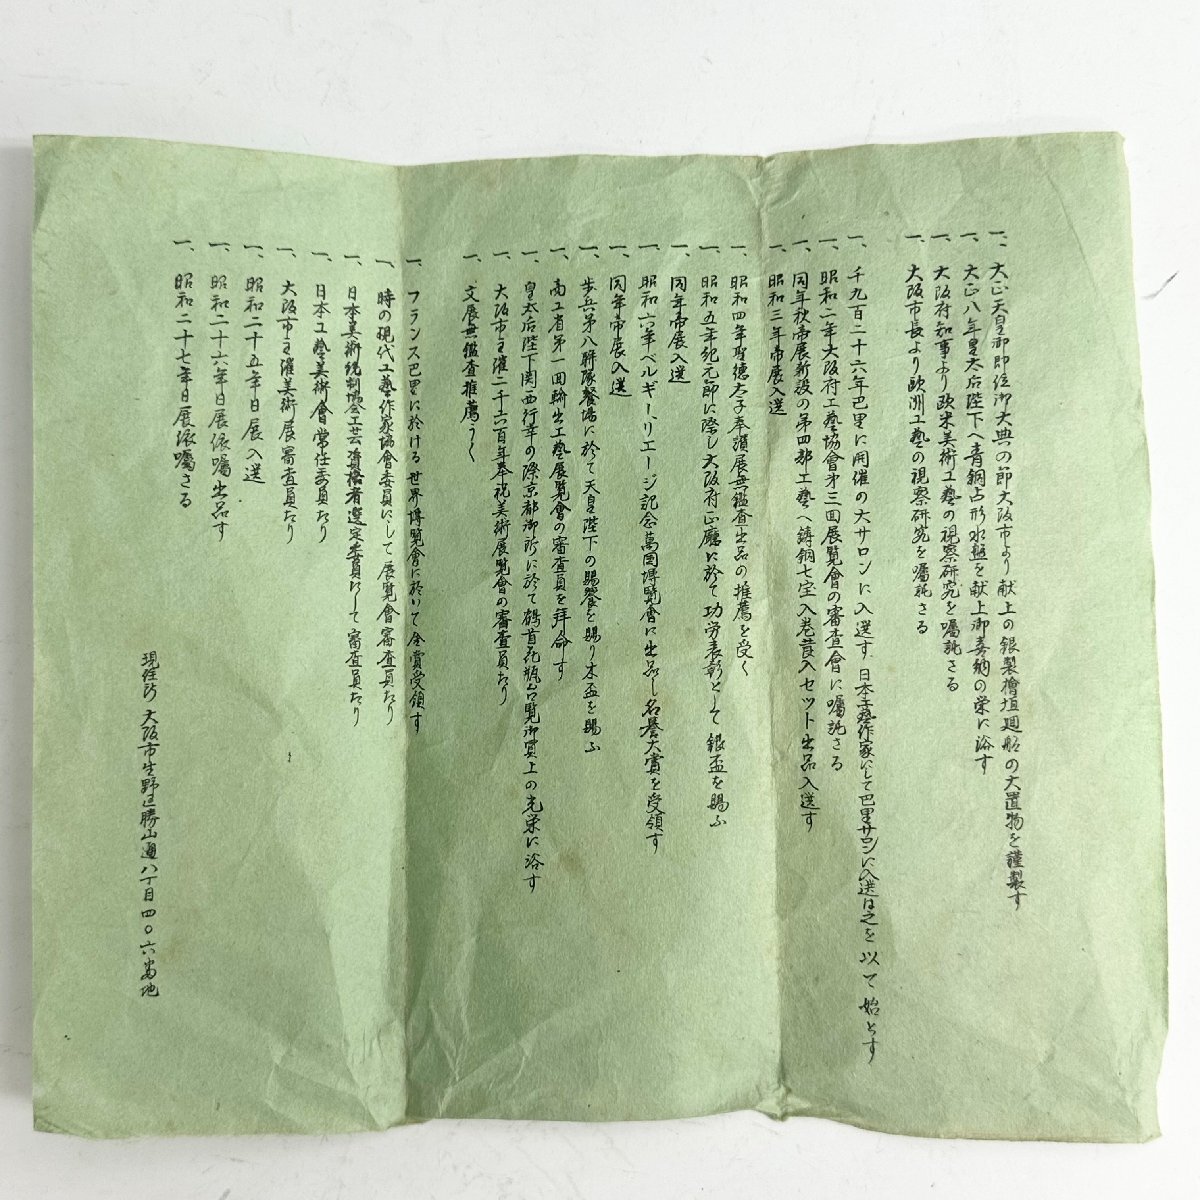 一、大正天皇御即位御大典の節大阪市より献上の銀製檜垣廻船の大置物を謹製す
一、大正八年皇太后陛下へ青銅占形水盤を献上御嘉納の栄に浴す
一、大阪府知事より欧米美術工藝の視察研究を嘱託さる
一、大阪市長より欧洲工藝の視察研究を嘱託さる
一、千九百二十六年巴里に開催の大サロンに入選す 日本工藝作家にして巴里サロンに入選は之を以て始とす
一、昭和二年大阪府工藝協會第三回展覧會の審査會に嘱託さる
一、同年秋帝展新設の第四部工藝へ鋳銅七宝入巻莨入セット出品入選す
一、昭和三年帝展入選
一、昭和四年聖徳太子奉讃展無鑑査出品の推薦を受く
一、昭和五年紀元節に際し大阪府正廳に於て功労表彰として銀盃を賜ふ
一、同年帝展入選
一、昭和六年ベルギーリエージ記念萬国博覧會に出品し名誉大賞を受領す
一、同年帝展入選
一、歩兵第八聯隊饗場に於て天皇陛下の賜饗を賜り木盃を賜ふ
一、商工省第一回輸出工藝展覧會の審査員を拝命す
一、皇太后陛下関西行幸の際京都御所に於て鶴首花瓶台覧御買上の光栄に浴す
一、大阪市主催二千六百年奉祝美術展覧會の審査員たり
一、文展無鑑査推薦うく
一、フランス巴里に於ける世界博覧會に於いて金賞受領す
一、時の現代工藝作家協會委員にして展覧會審査員たり
一、日本美術統制協会工芸資格者選定委員にして審査員たり
一、日本工藝美術會常任委員たり
一、大阪市主催美術展審査員たり
一、昭和二十五年日展入選
一、昭和二十六年日展依嘱出品す
一、昭和二十七年日展依嘱さる
現住所 大阪市生野区勝山通八丁目四〇六番地